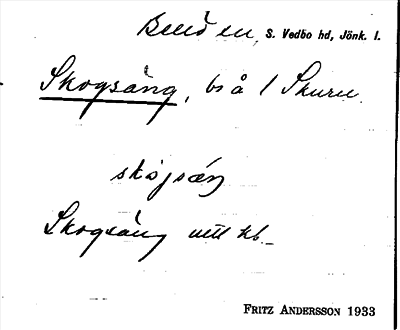 S. Vedbo hd, Jönk. l.
Skogsäng, bs å / Skuru
skojsäŋ
Skogsäng utt kb.
FRITZ ANDERSSON 1933